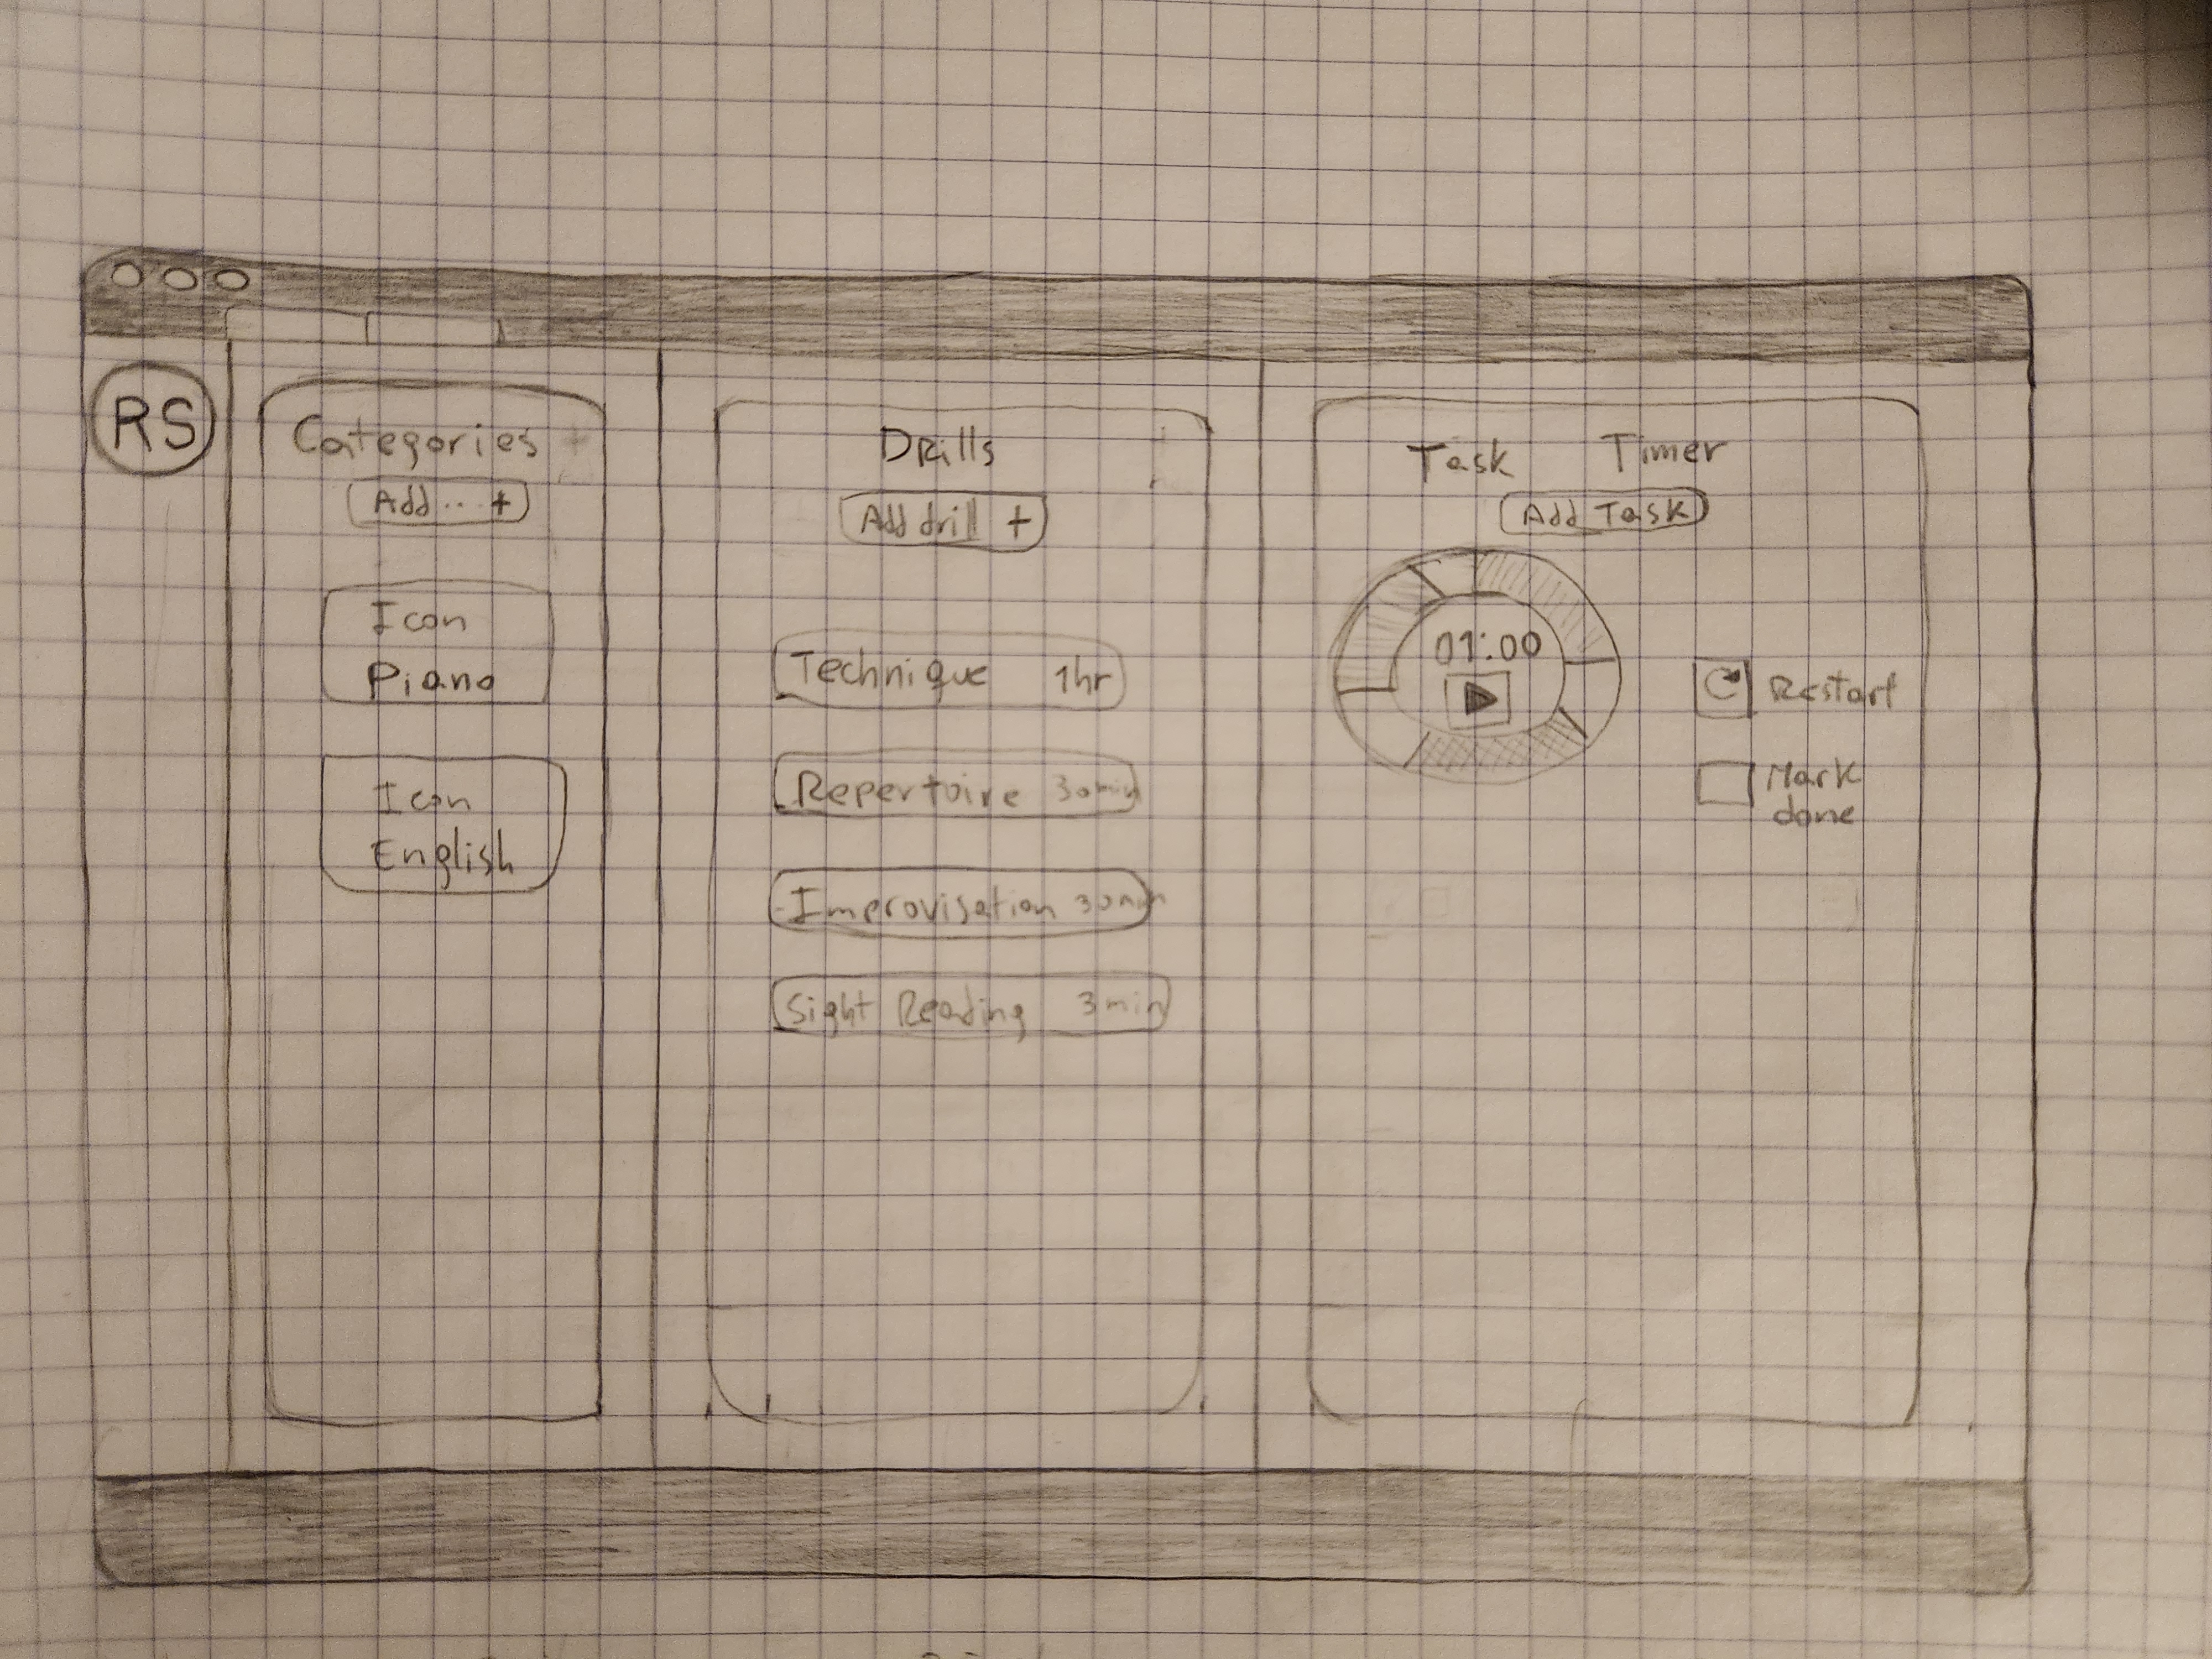 RS
Categories
Add ... +
Icon
Piano
Icon
English
Drills
Add drill +
Technique 1hr
Repertoire 30min
Improvisation 30min
Sight Reading 3min
Task Timer
Add Task
01:00
Restart
Mark
done